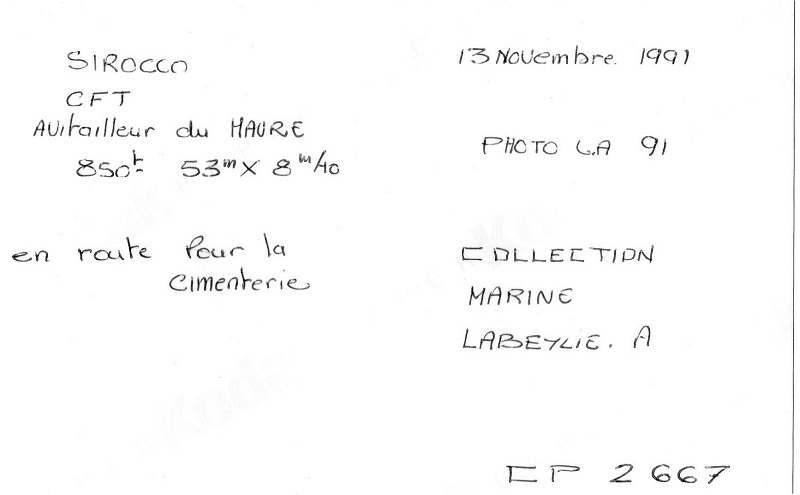 SIROCCO
CFT
AVitailleur du HAVRE
850t 53m X 8m/40
en route Pour la
Cimenterie
13 Novembre. 1991
PHOTO L.A 91
COLLECTION
MARINE
LABEYLIE. A
CP 2667